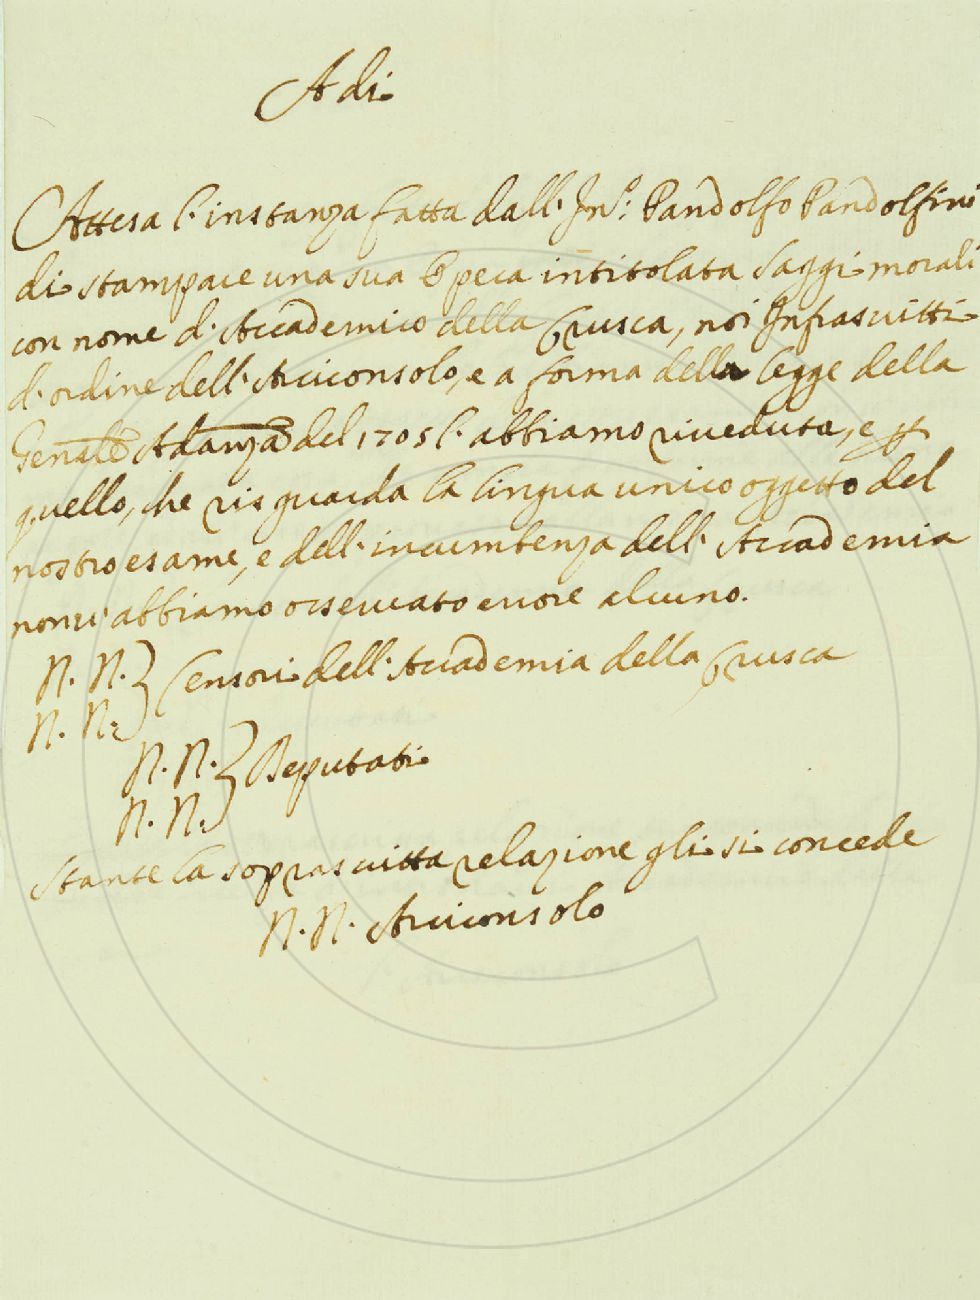 Adi
Attesa l'instanza fatta dall' Inn.º Pandolfo Pandolfini
di stampare una sua Opera intitolata Saggi morali
con nome d'Accademico della Crusca, noi Infrascritti
d'ordine dell'Arciconsolo, e a forma della legge della
Genāle Adanza del 1705 l'abbiamo riveduta, e p
quello, che risguarda la lingua unico oggetto del
nostro esame, e dell'incumbenza dell'Accademia
non v'abbiamo osservato errore alcuno.
N. N. } Censori dell'Accademia della Crusca
N. N.
N. N. } Deputati
N. N.
Stante la soprascritta relazione gli si concede
N. N. Arciconsolo